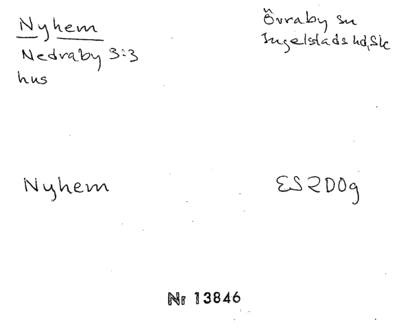 Nyhem
Nedraby 3:3
hus
Övraby sn
Ingelstads hd, Sk
Nyhem
ES2D0g
Nr 13846